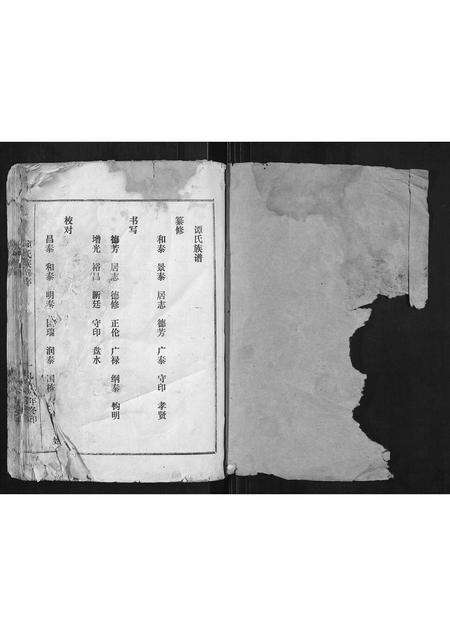 谭氏族谱
纂修
和泰 景泰 居志 德芳 广泰 守印 孝贤
书写
德芳 居志 德修 正伦 广禄 纲泰 钩明
增光 裕昌 新廷 守印 盘水
校对
昌泰 和泰 明泰 国瑞 润泰